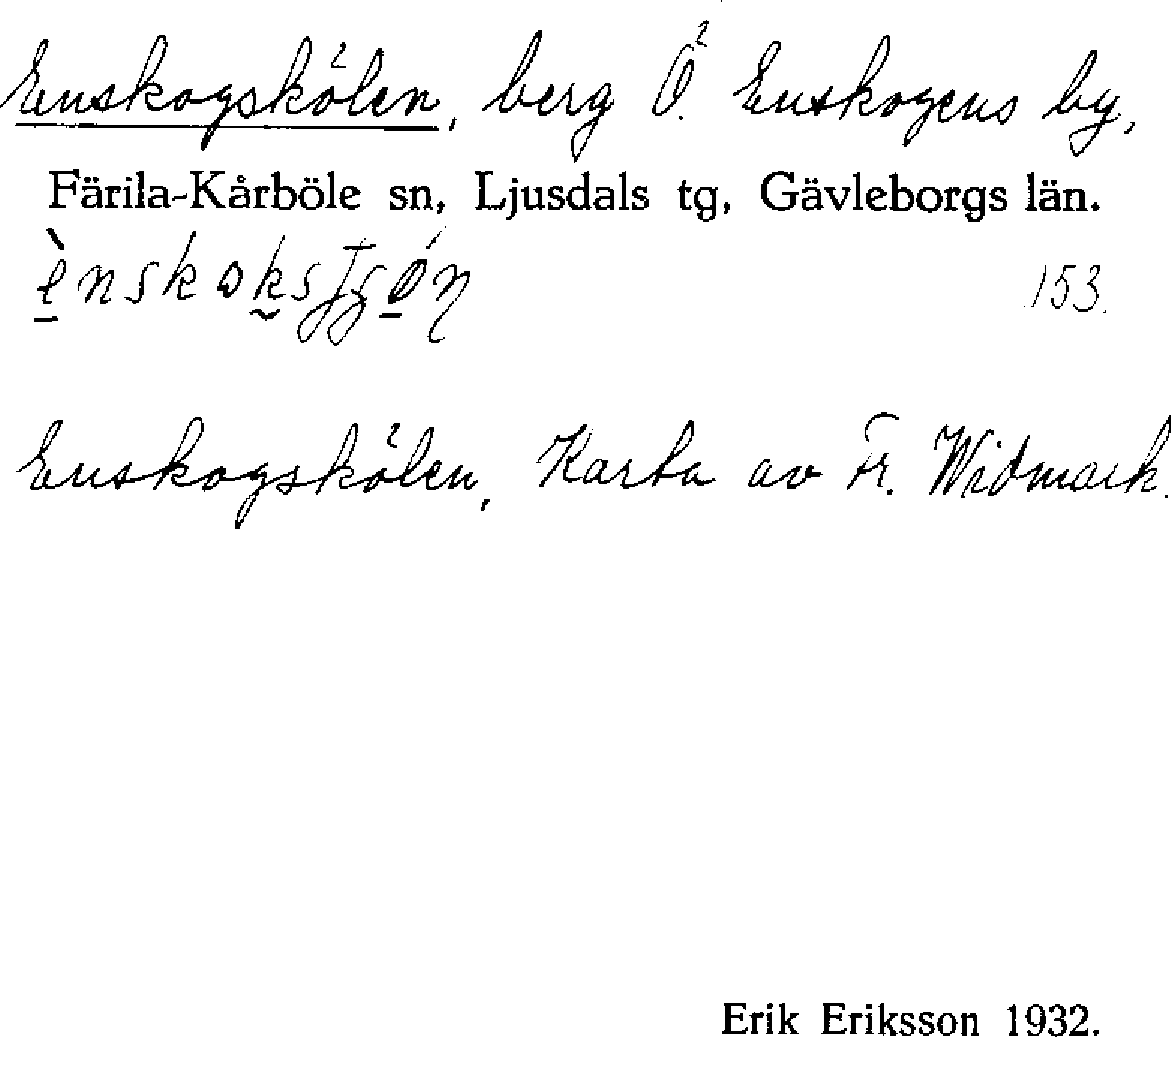 Enskogskölen, berg Ö. Enskogens by,
Färila-Kårböle sn, Ljusdals tg, Gävleborgs län.
153.
Enskogskölen, Karta av Fr. Widmark.
Erik Eriksson 1932.